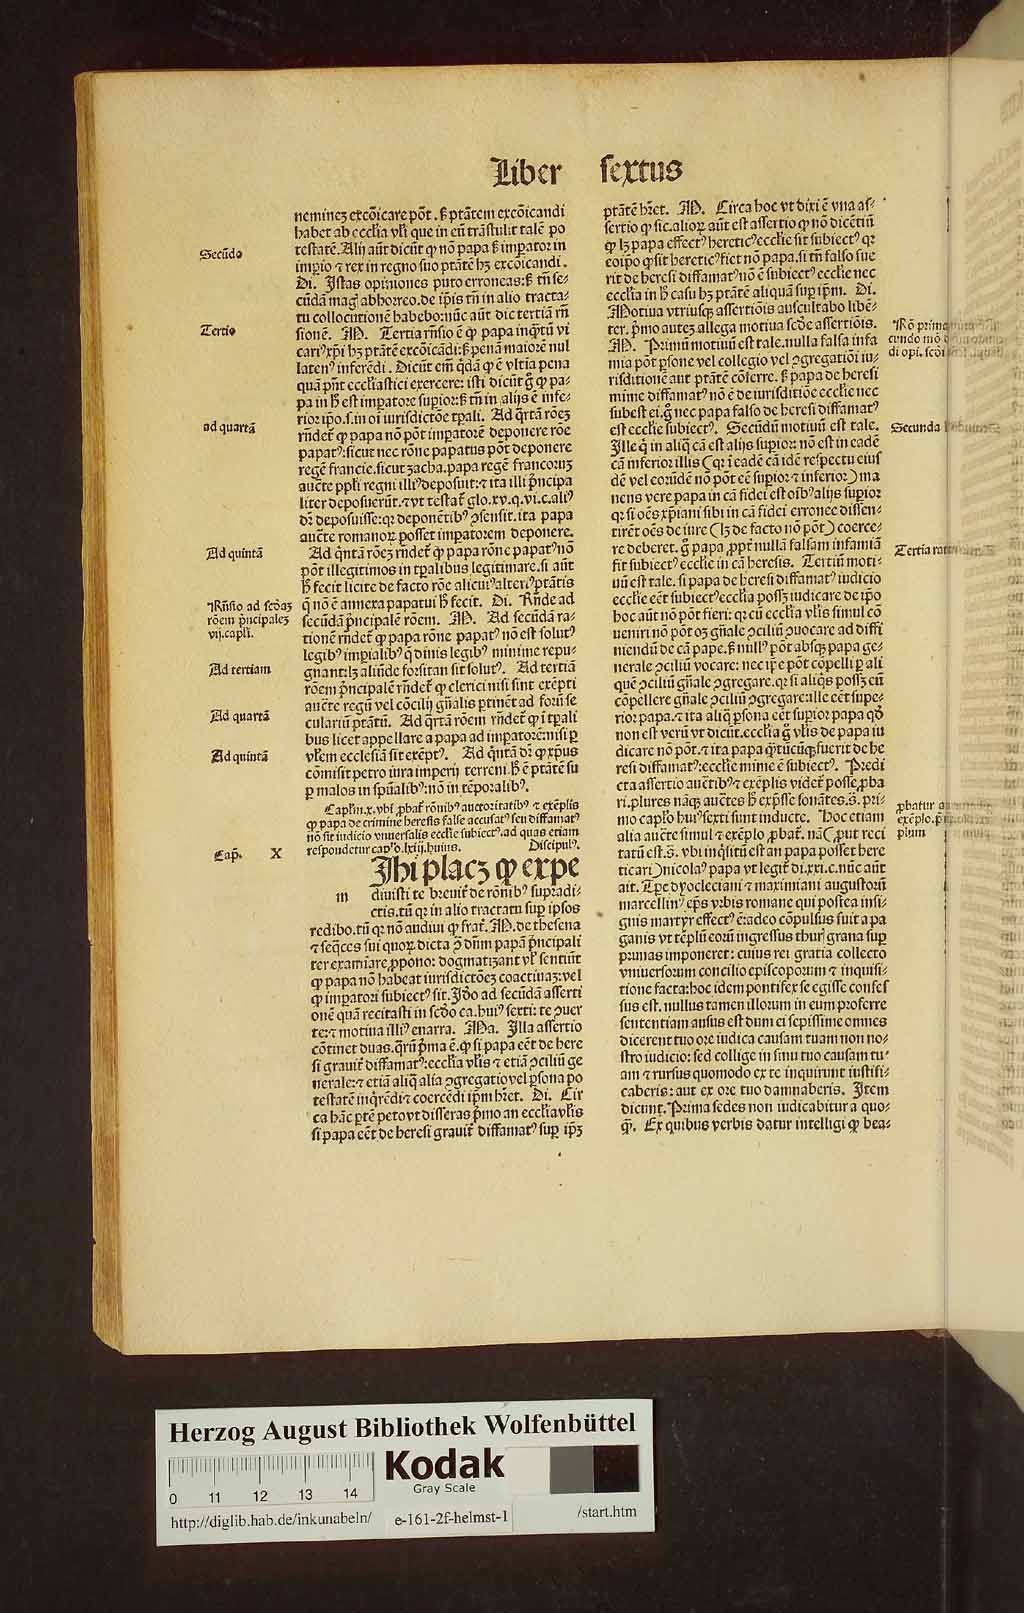 Liber sextus
neminez excōicare pōt. sꝫ ptātem excōicandi
habet ab ecclīa vl̄i que in eū trāstulit talē po
testatē. Alij aūt dicūt ꝙ nō papa sꝫ imperator in
imꝑio ⁊ rex in regno suo ptātē hꝫ excōicandi.
Di. Istas opiniones puto erroneas: sꝫ tn̄ se⸗
cūdā magꝰ abhorreo. de ip̄is tn̄ in alio tracta⸗
tu collocutionē habebo: nūc aūt dic tertiā rn̄
sionē. M. Tertia rn̄sio ē ꝙ papa inqꝫtū vi
cariꝰ xp̄i hꝫ ptātē excōicādi: sꝫ penā maiorē nul
latenꝰ inferēdi. Dicūt em̄ qͥdā ꝙ ē vltīa pena
quā pn̄t ecclīastici exercere: isti dicūt gͦ ꝙ pa⸗
pa in hͦ est imꝑatore supior: sꝫ tn̄ in alijs ē infe⸗
rior ip̄o. s. in oī iurisdictōe tꝑali. Ad qͣrtā rōeꝫ
rn̄det̄ ꝙ papa nō pōt imꝑatorē deponere rōe
papatꝰ: sicut nec rōne papatus pōt deponere
regē francie. sicut zacha. papa regē francoruꝫ
auc̄te ppl̄i regni illiꝰ deposuit: ⁊ ita illi p̄ncipa
liter deposuerūt. ⁊ vt testat̄ glo. xv. q. vi. c. aliꝰ
dr̄ deposuisse: qꝛ deponētibꝰ ꝯsensit. ita papa
auc̄te romanoꝝ posset imperatorem deponere.
Ad qͥntā rōeꝫ rn̄det̄ ꝙ papa rōne papatꝰ nō
pōt illegitimos in tꝑalibus legitimare. si aūt
hͦ fecit licite de facto rōe alicuiꝰ alteriꝰ ptātis
q̄ nō ē annexa papatui hͦ fecit. Di. Rn̄de ad
secūdā p̄ncipalē rōem. M. Ad secūdā ra⸗
tionē rn̄det̄ ꝙ papa rōne papatꝰ nō est solutꝰ
legibꝰ imꝑialibꝰ q̄ diuis legibꝰ minime repu⸗
gnant: lꝫ aliūde forsitan sit solutꝰ. Ad tertiā
rōem p̄ncipalē rn̄det̄ ꝙ clerici nisi sint exēpti
auc̄te regū vel cōcilij gn̄alis ptinēt ad forū se
culariū ptātū. Ad qͣrtā rōem rn̄det̄ ꝙ ī tꝑali
bus licet appellare a papa ad imꝑatorē: nisi ꝑ
vl̄em ecclesiā sit exēptꝰ. Ad qͥntā dr̄ ꝙ xp̄us
cōmisit petro iura imperij terreni. hͦ ē ptātē su
ꝑ malos in spūalibꝰ: nō in tēporalibꝰ.
Capl̄m. x. vbi ꝓbat̄ rōnibꝰ auctoritatibꝰ ⁊ exēplis
ꝙ papa de crimine heresis false accusatꝰ seu diffamatꝰ
nō sit iudicio vniuersalis ecclīe subiectꝰ. ad quas etiam
respondetur capl̄o. lxiij. huius. Discipulꝰ.
Ihi placꝫ ꝙ expe
m diuisti te breuit̄ de rōnibꝰ supradi⸗
ctis. tū qꝛ in alio tractatu suꝑ ipsos
redibo. tū qꝛ nō audiui ꝙ frat̄. M. de thesena
⁊ seq̄ces sui quoꝝ dicta ꝯ̄ dn̄m papā p̄ncipali
ter examīare ꝓpono: dogmatizant vel sentiūt
ꝙ papa nō habeat iurisdictōeꝫ coactiuaꝫ: vel
ꝙ imꝑatori subiectꝰ sit. Iō ad secūdā asserti
onē quā recitasti in scdo ca. huiꝰ sexti: te ꝯuer
te: ⁊ motiua illiꝰ enarra. Ma. Illa assertio
cōtinet duas. qͣrū p̄ma ē. ꝙ si papa eēt de here
si grauit̄ diffamatꝰ: ecclīa vl̄is ⁊ etiā ꝯciliū ge
nerale: ⁊ etiā aliq̄ alia ꝯgregatio vel ꝑsona po
testatē inq̄rēdi ⁊ coercēdi ip̄m hr̄et. Di. Cir
ca hāc ꝑtē peto vt disseras p̄mo an ecclīa vl̄is
si papa eēt de heresi grauit̄ diffamatꝰ suꝑ ip̄ꝫ
ptātē hr̄et. M. Circa hoc vt dixi ē vna as⸗
sertio ꝙ sic. alioꝝ aūt est assertio ꝙ nō dicētiū
ꝙ lꝫ papa effectꝰ hereticꝰ ecclīe sit subiectꝰ qꝛ
eoip̄o ꝙ sit hereticꝰ fiet nō papa. si tn̄ falso fue
rit de heresi diffamatꝰ nō ē subiectꝰ ecclīe nec
ecclīa in hͦ casu hꝫ ptātē aliquā suꝑ ip̄m. Di.
Motiua vtriusqꝫ assertiōis auscultabo libē⸗
ter. p̄mo autez allega motiua scd̄e assertiōis.
M. Primū motiuū est tale. nulla falsa infa
mia pōt ꝑsone vel collegio vel ꝯgregatiōi iu⸗
risditionē aut ptātē cōferre. sꝫ papa de heresi
mime diffamatꝰ nō ē de iurisditiōe ecclīe nec
subest ei. gͦ nec papa falso de heresi diffamatꝰ
est ecclīe subiectꝰ. Secūdū motiuū est tale.
Ille qͥ in aliq̄ cā est alijs supior: nō est in eadē
cā inferior illis (qꝛ ī eadē cā idē respectu eius
dē vel eorūdē nō pōt eē supior ⁊ inferior) ma
nens vere papa in cā fidei est oībꝰ alijs supior
qꝛ si oēs xp̄iani sibi in cā fidei erronee dissen⸗
tirēt oēs de iure (lꝫ de facto nō pōt) coerce⸗
re deberet. gͦ papa ꝓpt̄ nullā falsam infamiā
fit subiectꝰ ecclīe in cā heresis. Tertiū moti⸗
uū est tale. si papa de heresi diffamatꝰ iudicio
ecclīe eēt subiectꝰ ecclīa possꝫ iudicare de ip̄o
hoc aūt nō pōt fieri: qꝛ cū ecclīa vl̄is simul cō
ueniri nō pōt oꝫ gn̄ale ꝯciliū ꝯuocare ad diffi
niendū de cā pape. sꝫ nullꝰ pōt absqꝫ papa ge⸗
nerale ꝯciliū vocare: nec ip̄e pōt cōpelli ꝑ ali
quē ꝯciliū gn̄ale ꝯgregare. qꝛ si aliq̄s possꝫ eū
cōpellere gn̄ale ꝯciliū ꝯgregare: ille eēt supe⸗
rior papa. ⁊ ita aliq̄ ꝑsona eēt supior papa qd̄
non est verū vt dicūt. ecclīa gͦ vl̄is de papa iu
dicare nō pōt. ⁊ ita papa qͣtūcūqꝫ fuerit de he
resi diffamatꝰ: ecclīe mime ē subiectꝰ. Predi
cta assertio auc̄tibꝰ ⁊ exēplis videt̄ posse ꝓba
ri. plures nāqꝫ auc̄tes hͦ exp̄sse sonātes. s̄. pri⸗
mo capl̄o huiꝰ sexti sunt inducte. Hoc etiam
alia auc̄te simul ⁊ exēplo ꝓbat̄. nā (ꝓut reci
tatū est. s̄. vbi inq̄sitū est an papa posset here
ticari) nicolaꝰ papa vt legit̄ di. xxi. c. nūc aūt
ait. Tꝑe dyocleciani ⁊ maximiani augustorū
marcellinꝰ ep̄s vrbis romane qui postea insi⸗
gnis martyr effectꝰ ē: adeo cōpulsus fuit a pa
ganis vt tēplū eorū ingressus thuris grana suꝑ
prunas imponeret: cuius rei gratia collecto
vniuersorum concilio episcoporum ⁊ inquisi⸗
tione facta: hoc idem pontifex se egisse confes
sus est. nullus tamen illorum in eum proferre
sententiam ausus est dum ei sepissime omnes
dicerent tuo ore iudica causam tuam non no⸗
stro iudicio: sed collige in sinu tuo causam tu⸗
am ⁊ rursus quomodo ex te inquirunt iustifi⸗
caberis: aut ex ore tuo damnaberis. Item
dicunt. Prima sedes non iudicabitur a quo⸗
qͣ. Ex quibus verbis datur intelligi ꝙ bea⸗
Secūdo
Tertio
ad quartā
Ad quintā
Rn̄sio ad scd̄aꝫ
rōem p̄ncipaleꝫ
vij. capl̄i.
Ad tertiam
Ad quartā
Ad quintā
Cap̄. X
Rō prim
cundo mō
di opi. scōi
Secunda
Tertia
ꝓbatur
exēplo. p̄
plum
Herzog August Bibliothek Wolfenbüttel
0 11 12 13 14
Kodak
Gray Scale
http://diglib.hab.de/inkunabeln/ e-161-2f-helmst-1 /start.htm